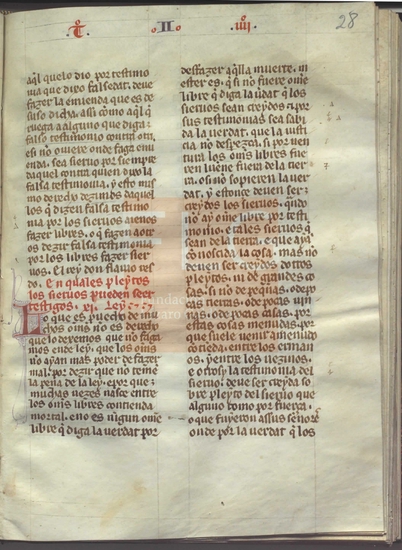 T II IIII 28
aql quelo dio por testimo
nia que dixo falsedat. deue
fazer la emienda que es de
suso dicha. assi cōmo aql q̄
ruega a alguno que diga
falso testimonio contra otri.
e si nō ouiere onde faga emi
enda. sea sieruo por siempre
daquel contra quien dixo la
falsa testimonia. y esto mis
mo dezimos daquel
los q̄ dizen falsa testimo
nia por los sieruos
fazer libres. o q̄ fazen a otr
os dezir falsa testimonia
por los libres fazer sier
uos. El rey don flauio
do. En quales pleytos
los sieruos pueden seer
testigos. xi. Ley.
Lo que es puesto de mu
chos om̄s no es derecho
que lo dexemos que no faga
mos ende ley. que los om̄s
no ayan mas poder de fazer
mal. por dezir que no teme
la pena de la ley. e por que
muchas uezes nasce entre
los om̄s libres contienda
mortal. e no es ningun om̄e
libre q̄ diga la uerdat por
desfazer aq̄lla muerte. m
ester es. q̄ si no fuere om̄e
libre q̄ diga la u̅dat q̄ los
sieruos sean creydos. e por
sus testimonias sea sabi
da la uerdat. que la iusti
cia nō despezca. si por uen
tura los om̄s libres fue
ren luene fuera de la tier
ra. o si no sopieren la uer
dat. y estonce deuen ser
creydos los sieruos. q̄ndo
nō ay om̄e libre por testi
monio. e tales sieruos q̄
sean de la tierra. e que aya
conoscida la cosa. mas no
deuen ser creydos dotros
pleytos. ni de grandes co
sas. si no de pequenas. o de po
cas tierras. o de pocas uin
nas. o de pocas cosas. por
estas cosas menudas. por
que suele uenir aueniendo
cotiedat. entre los cristian
os. y entre los uezinos.
e otrosy la testimonia del
sieruo. deue ser creyda so
bre pleyto del sieruo que
alguno tomo por fuerça.
o que fuyeron a sus señore
onde por la uerdat q̄ los